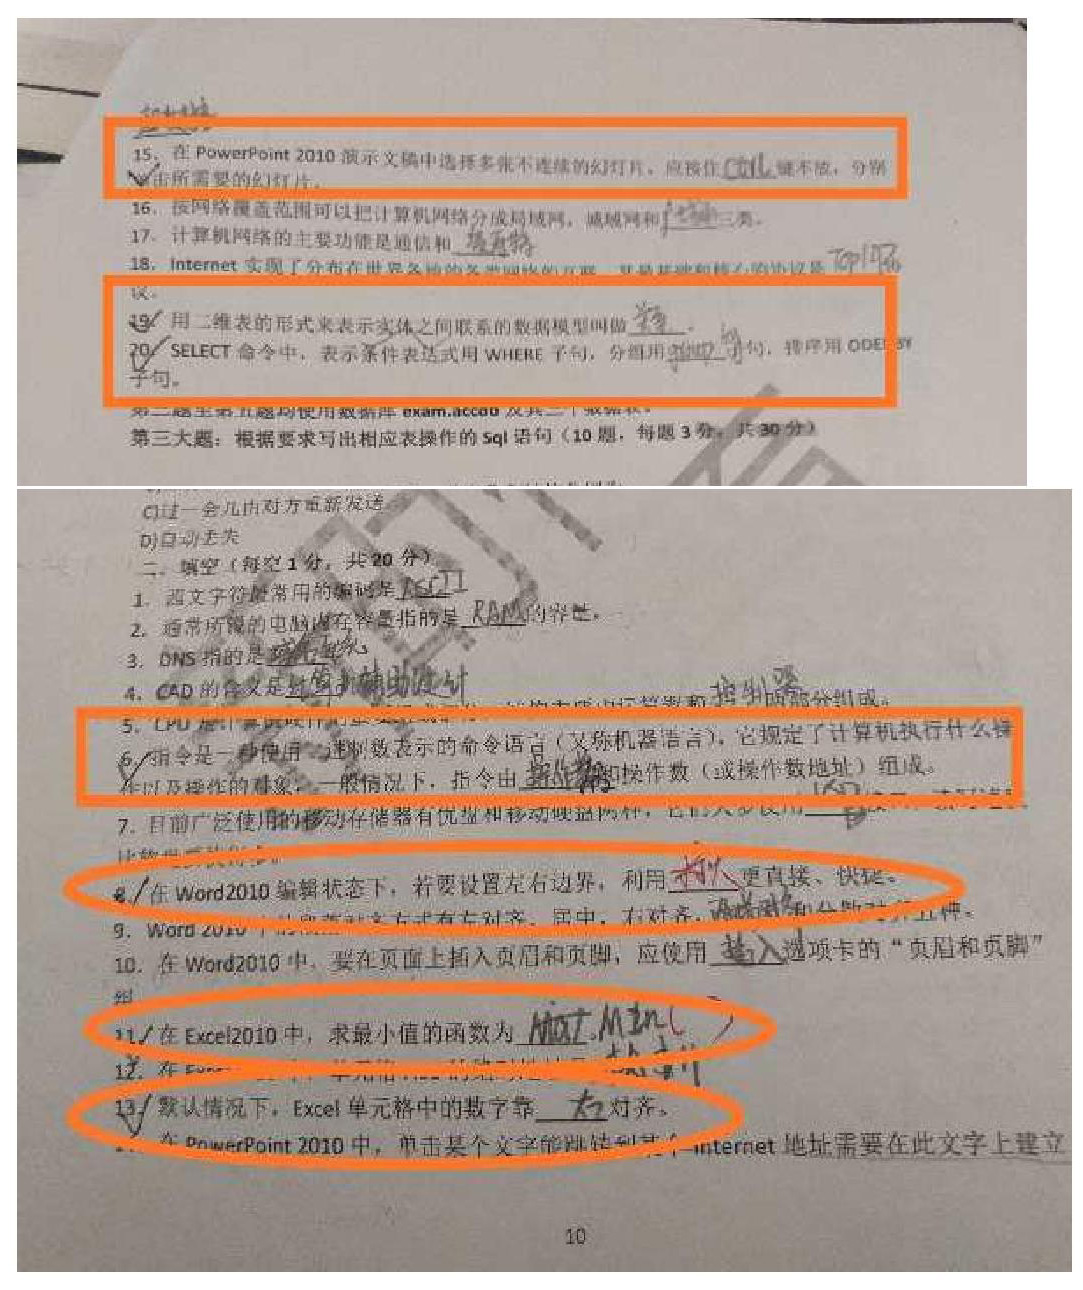 15、在 PowerPoint 2010 演示文稿中选择多张不连续的幻灯片，应按住 CTRL 键不放，分别
击所需要的幻灯片。
16. 按网络覆盖范围可以把计算机网络分成局域网，城域网和广域网三类。
17. 计算机网络的主要功能是通信和
18. Internet 实现了分布在世界各地的各类网络的互联，其最基础和核心的协议是
议。
19. 用二维表的形式来表示实体之间联系的数据模型叫做
20. SELECT 命令中，表示条件表达式用 WHERE 子句，分组用 句，排序用 ODER BY
子句。
第三大题：根据要求写出相应表操作的 Sql 语句（10 题，每题 3 分，共 30 分）
C)过一会儿由对方重新发送
D)自动丢失
二、填空（每空 1 分，共 20 分）
1. 西文字符最常用的编码是 ASCII
2. 通常所说的电脑内存容量指的是 RAM 的容量。
3. DNS 指的是
4. CAD 的含义是计算机辅助设计
5. CPU 控制器两部分组成。
6. 指令是一种使用二进制数表示的命令语言（又称机器语言），它规定了计算机执行什么操
作以及操作的对象，一般情况下，指令由 和操作数（或操作数地址）组成。
7. 目前广泛使用的移动存储器有优盘和移动硬盘两种，它们大多使用
8. 在 Word2010 编辑状态下，若要设置左右边界，利用 更直接、快捷。
9. Word 2010 中的段落对齐方式有左对齐、居中，右对齐， 和分散对齐五种。
10. 在 Word2010 中，要在页面上插入页眉和页脚，应使用 插入 选项卡的“页眉和页脚”
组
11. 在 Excel2010 中，求最小值的函数为 Min( )
12. 在
13. 默认情况下，Excel 单元格中的数字靠 右 对齐。
在 PowerPoint 2010 中，单击某个文字能跳转到某个 Internet 地址需要在此文字上建立
10